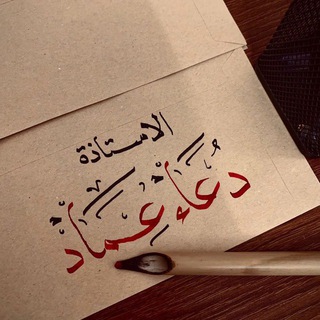 الاستاذة
دعاء عماد